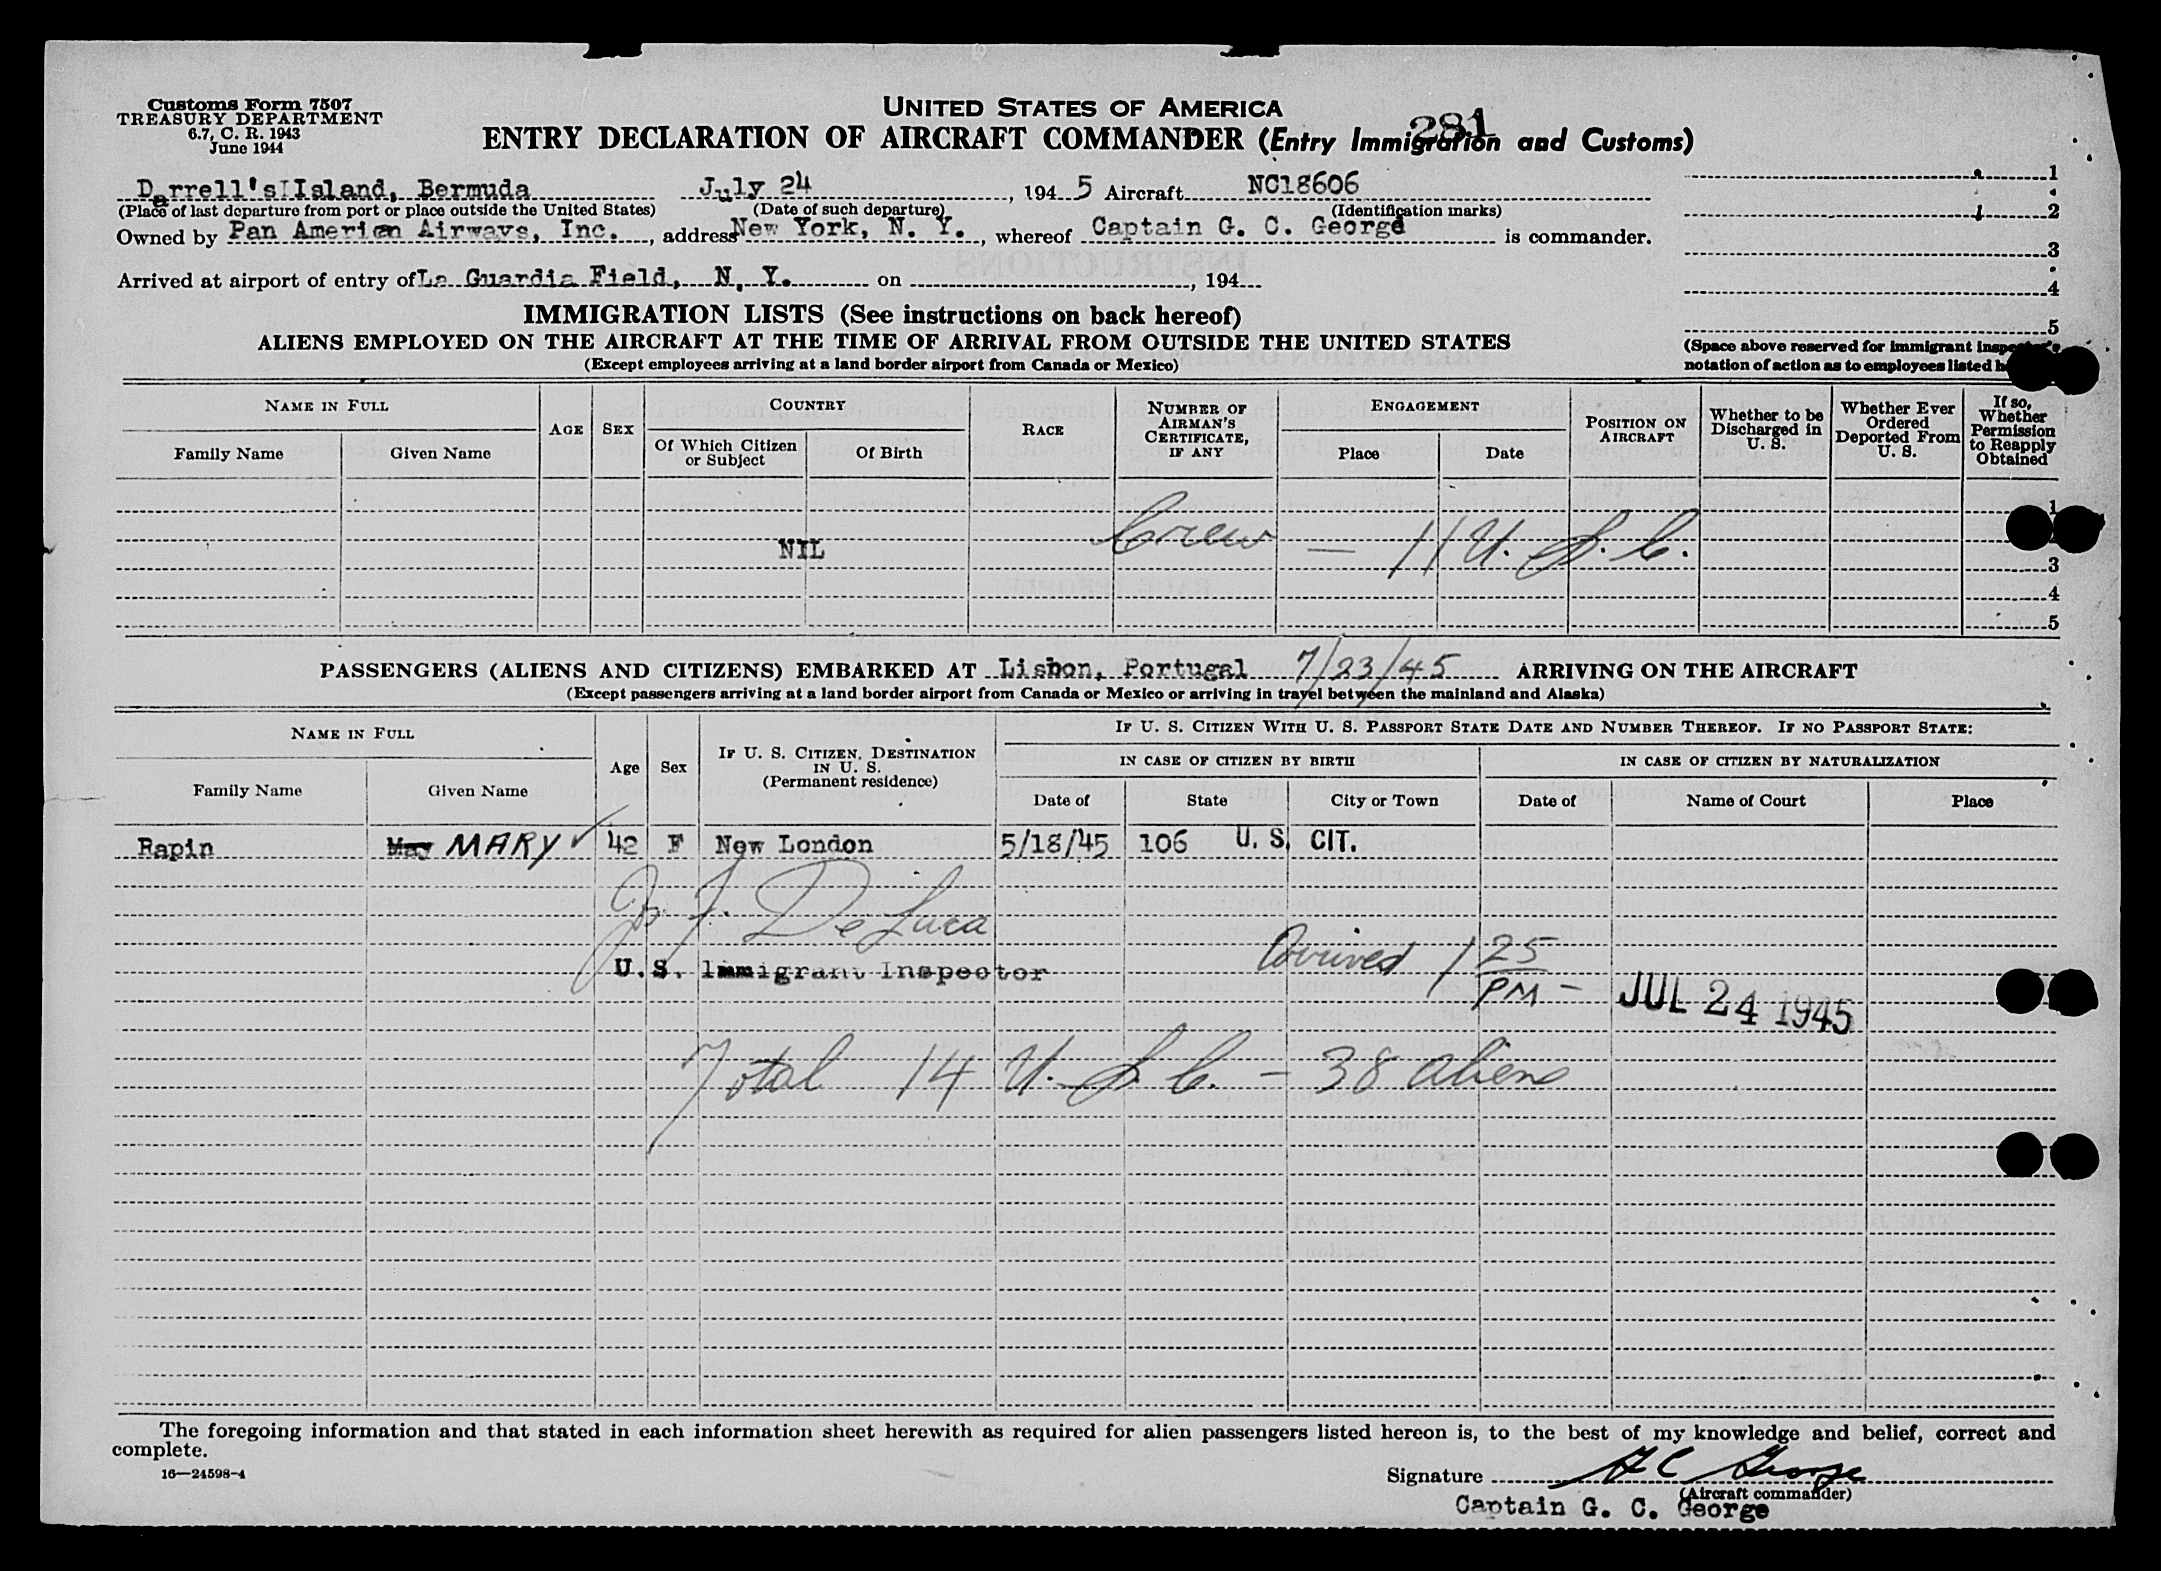 Customs Form 7507
TREASURY DEPARTMENT
6.7, C. R. 1943
June 1944
UNITED STATES OF AMERICA
281
ENTRY DECLARATION OF AIRCRAFT COMMANDER (Entry Immigration and Customs)
Darrell's Island, Bermuda July 24, 1945 Aircraft NC18606
(Place of last departure from port or place outside the United States) (Date of such departure) (Identification marks)
Owned by Pan American Airways, Inc., address New York, N. Y., whereof Captain G. C. George is commander.
Arrived at airport of entry of La Guardia Field, N. Y. on , 194
1
2
3
4
5
(Space above reserved for immigrant inspector's
notation of action as to employees listed
IMMIGRATION LISTS (See instructions on back hereof)
ALIENS EMPLOYED ON THE AIRCRAFT AT THE TIME OF ARRIVAL FROM OUTSIDE THE UNITED STATES
(Except employees arriving at a land border airport from Canada or Mexico)
NAME IN FULL
Family Name Given Name
AGE SEX
COUNTRY
Of Which Citizen or Subject Of Birth
RACE
NUMBER OF AIRMAN'S CERTIFICATE, IF ANY
ENGAGEMENT
Place Date
POSITION ON AIRCRAFT
Whether to be Discharged in U. S.
Whether Ever Ordered Deported From U. S.
If so, Whether Permission to Reapply Obtained
1
NIL Crew — 11 U. S. C.
3
4
5
PASSENGERS (ALIENS AND CITIZENS) EMBARKED AT Lisbon, Portugal 7/23/45 ARRIVING ON THE AIRCRAFT
(Except passengers arriving at a land border airport from Canada or Mexico or arriving in travel between the mainland and Alaska)
NAME IN FULL
Family Name Given Name
Age Sex
IF U. S. CITIZEN, DESTINATION IN U. S.
(Permanent residence)
IF U. S. CITIZEN WITH U. S. PASSPORT STATE DATE AND NUMBER THEREOF. IF NO PASSPORT STATE:
IN CASE OF CITIZEN BY BIRTH IN CASE OF CITIZEN BY NATURALIZATION
Date of State City or Town Date of Name of Court Place
Rapin May MARY ✓ 42 F New London 5/18/45 106 U. S. CIT.
Jos. F. De Luca
U. S. Immigrant Inspector
Arrived 1 25 PM — JUL 24 1945
Total 14 U. S. C. — 38 aliens
The foregoing information and that stated in each information sheet herewith as required for alien passengers listed hereon is, to the best of my knowledge and belief, correct and
complete.
16—24598-4
Signature G C George
(Aircraft commander)
Captain G. C. George